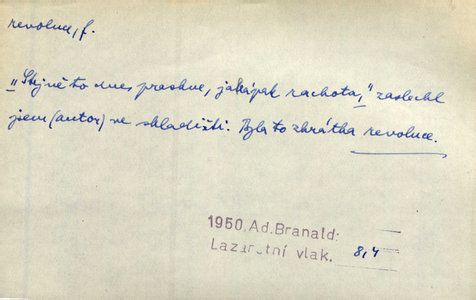 revoluce, f.
„Stejně to dnes praskne, jakápak rachota," zaslechl
jsem (autor) ve skladišti. Byla to zkrátka revoluce.
1950, Ad. Branald:
Lazaretní vlak. 8,4